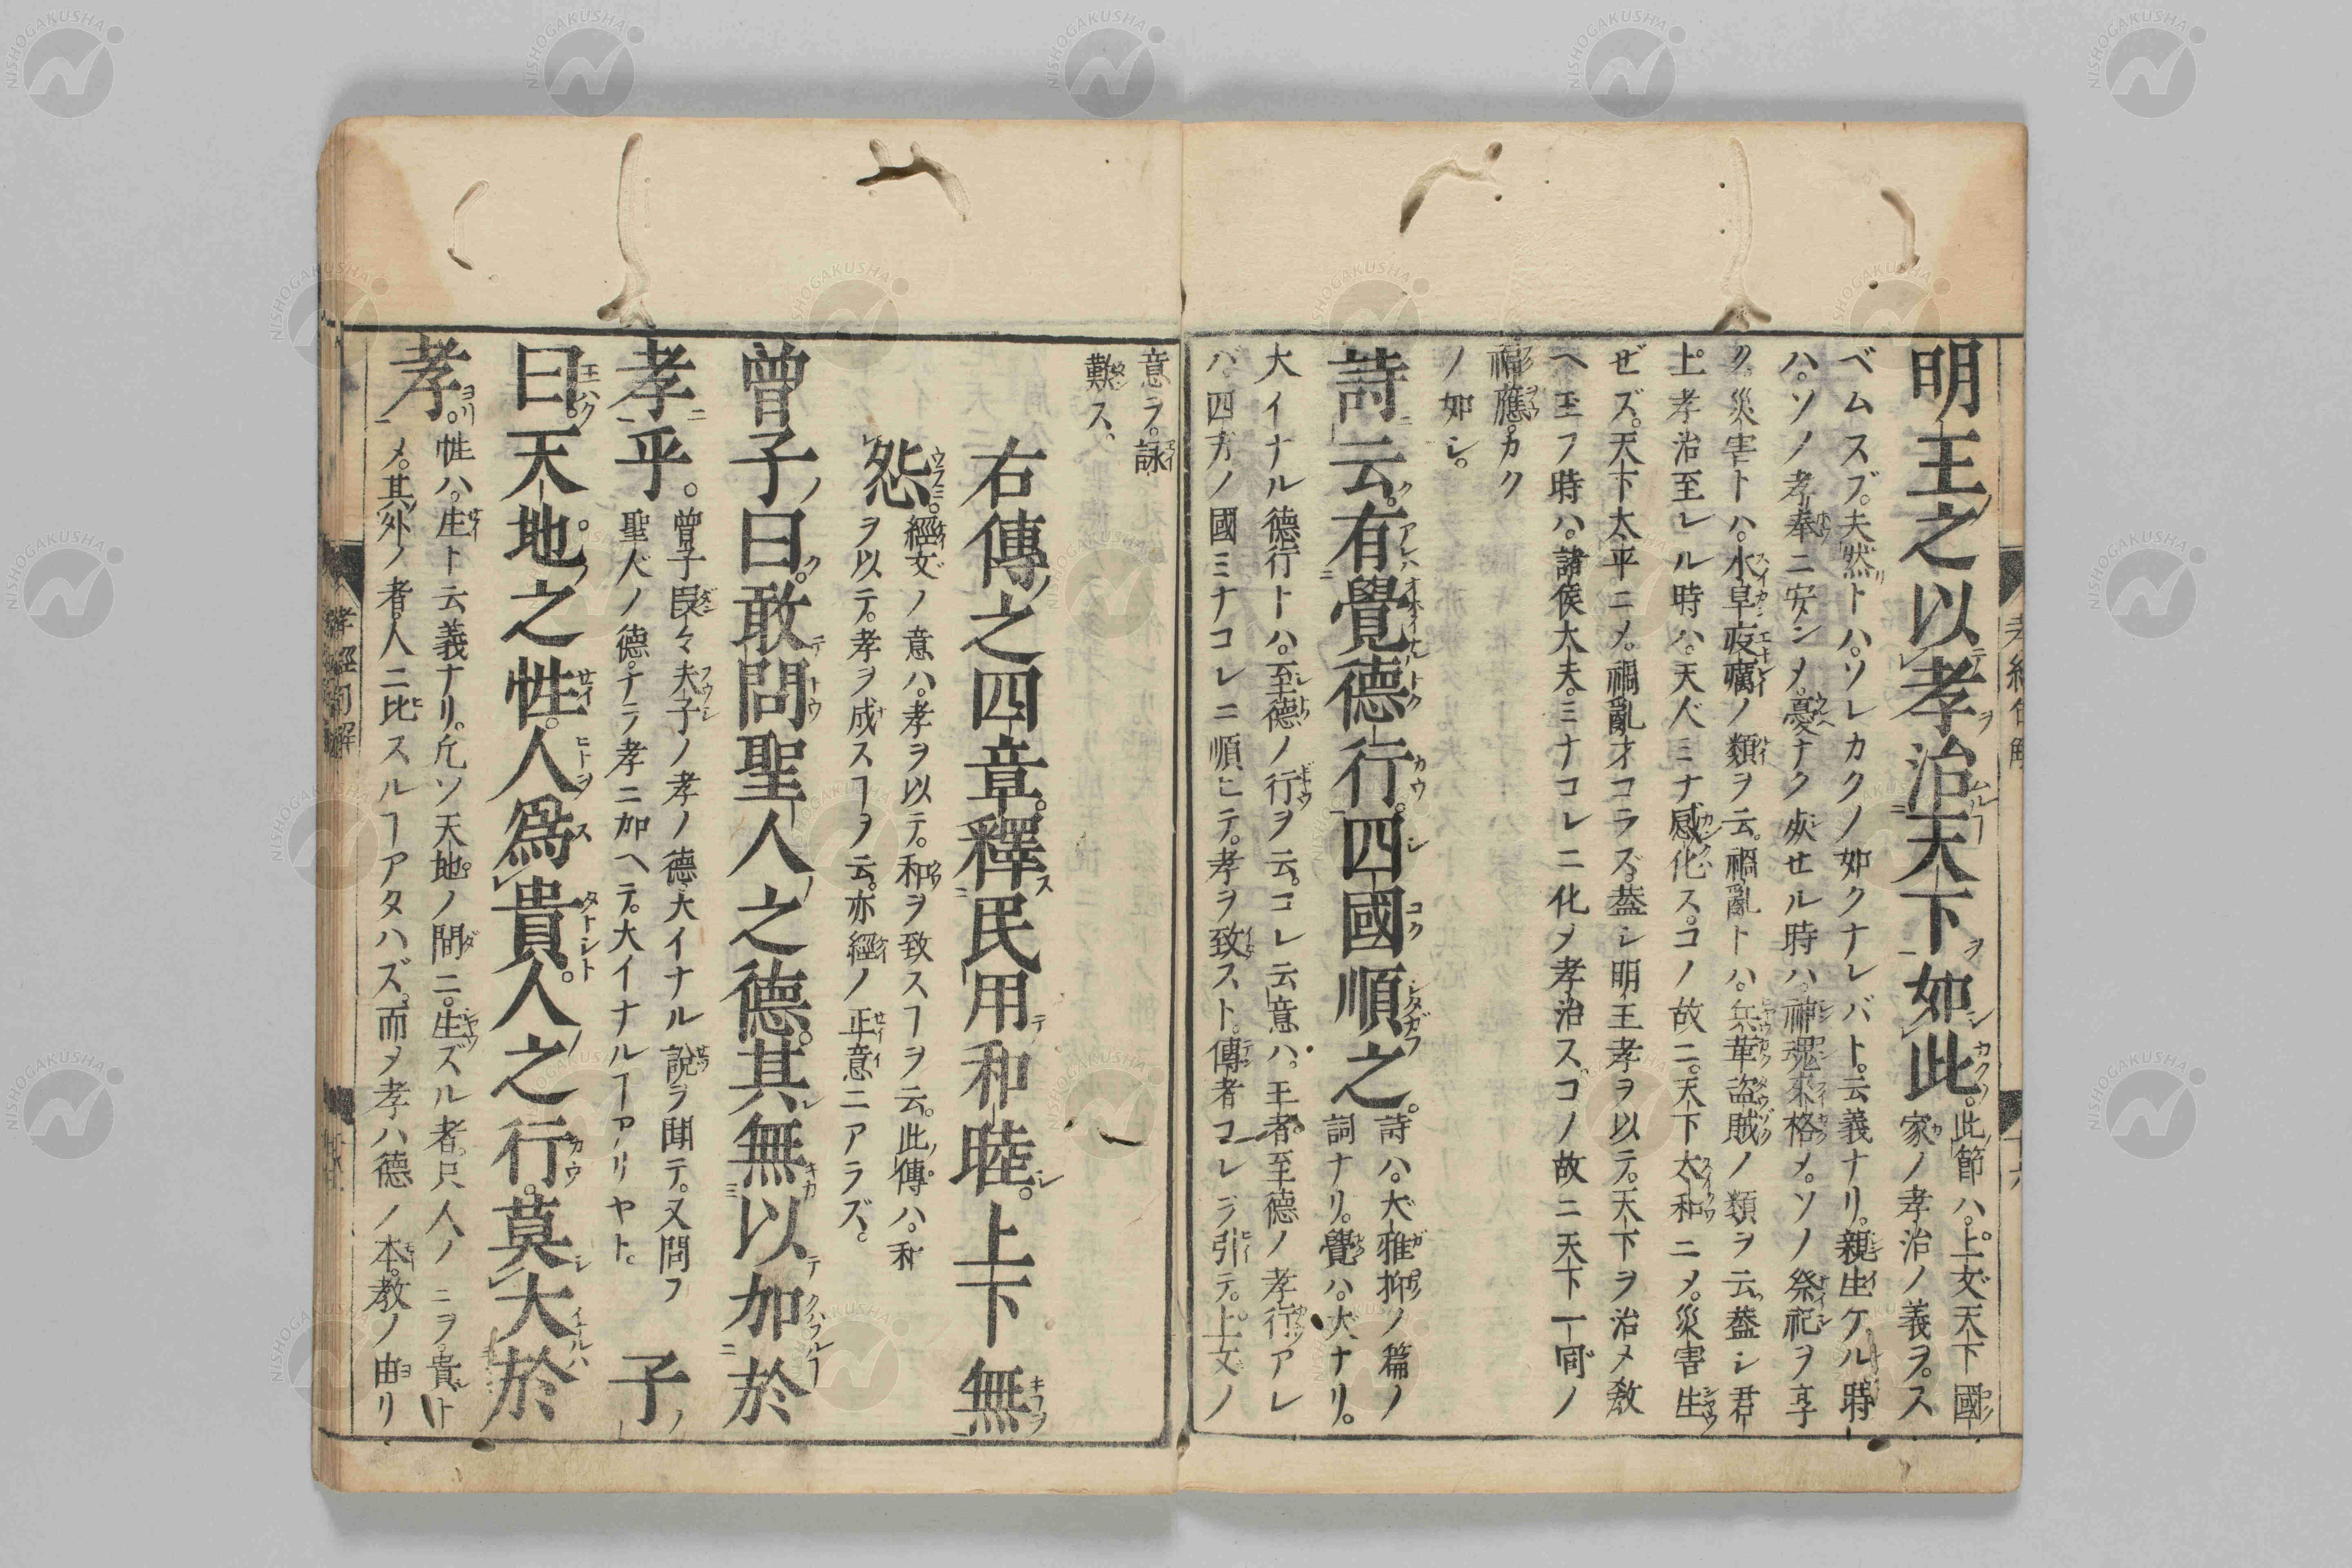 明王之以孝治天下如此。此節ハ。上文天下國
家ノ孝治ノ義ヲ。ス
ベムスブ。夫然トハ。ソレカクノ如クナレバト。云義ナリ。親生ケル時
ハ。ソノ孝奉ニ安ンメ。憂ナク處セル時ハ。神魂來格メ。ソノ祭祀ヲ享
ク。災害トハ。水旱疫癘ノ類ヲ云。禍亂トハ。兵革盜賊ノ類ヲ云。蓋シ君
上孝治至レル時ハ。天人ミナ感化ス。コノ故ニ。天下太和ニメ。災害生
ゼズ。天下太平ニメ。禍亂オコラズ。蓋シ明王孝ヲ以テ。天下ヲ治メ敎
ヘ玉フ時ハ。諸侯大夫。ミナコレニ化メ孝治ス。コノ故ニ天下一同ノ
福應。カク
ノ如シ。
詩云。有覺德行。四國順之。詩ハ。大雅抑ノ篇ノ
詞ナリ。覺ハ。大ナリ。
大イナル德行トハ。至德ノ行ヲ云。コレ云意ハ。王者。至德ノ孝行アレ
バ。四方ノ國ミナコレニ順ヒテ。孝ヲ致スト。傳者コレヲ引テ。上文ノ
意ヲ。詠
歎ス。
右傳之四章。釋民用和睦。上下無
怨。經文ノ意ハ。孝ヲ以テ。和ヲ致スヿヲ云。此傳ハ。和
ヲ以テ。孝ヲ成スヿヲ云。亦經ノ正意ニアラズ。
曾子曰。敢問聖人之德。其無以加於
孝乎。曾子段々夫子ノ孝ノ德大イナル說ヲ聞テ。又問フ
聖人ノ德ナラ孝ニ加ヘテ。大イナルヿアリヤト。
子
曰。天地之性。人爲貴。人之行。莫大於
孝。性ハ。生ト云義ナリ。凡ソ天地ノ間ニ。生ズル者。只人ノミヲ。貴ト
メ。其外ノ者。人ニ比スルヿアタハズ。而メ孝ハ德ノ本。教ノ由リ
孝經句解